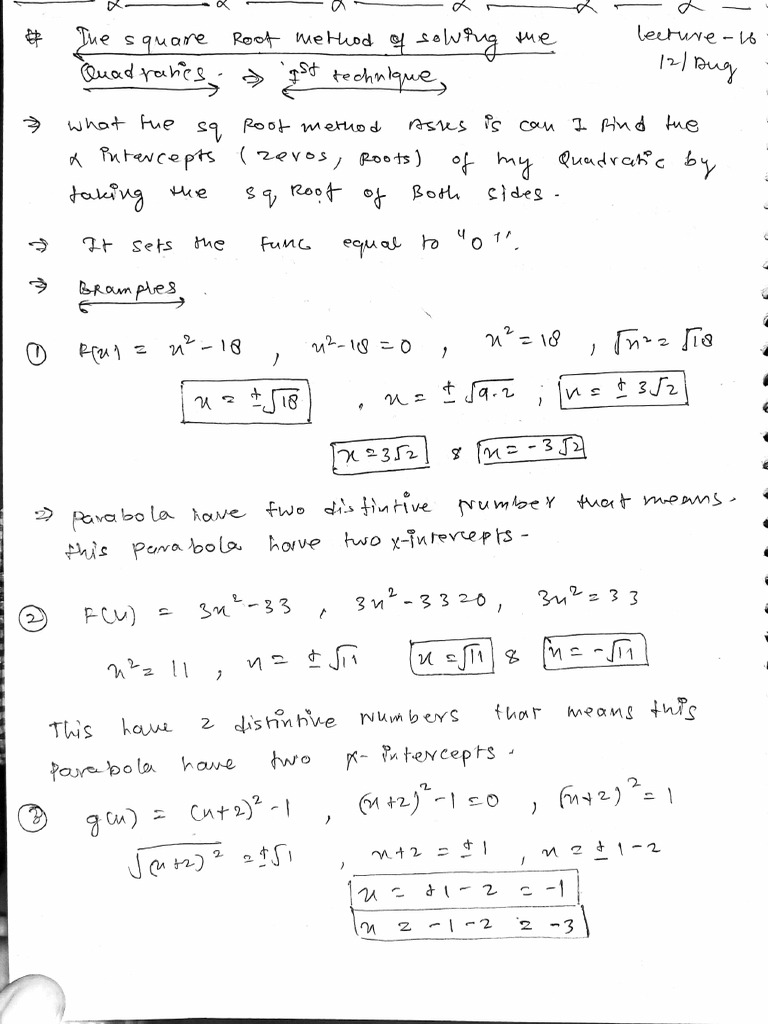 # The square Root method of solving the lecture-16
Quadratics. ⇒ "1st technique" 12/Aug
⇒ what the sq Root method Asks is can I find the
x intercepts (zeros, Roots) of my Quadratic by
taking the sq Root of Both sides.
⇒ It sets the func equal to "0".
⇒ Examples
① f(x) = x² - 18 , x² - 18 = 0 , x² = 18 , √x² = √18
x = ±√18 , x = ±√9.2 ; x = ± 3√2
x = 3√2 & x = -3√2
⇒ parabola have two distintive Number that means.
this parabola have two x-intercepts -
② F(x) = 3x² - 33 , 3x² - 33 = 0 , 3x² = 33
x² = 11 , x = ±√11 x = √11 & x = -√11
This have 2 distintive Numbers that means this
parabola have two x-intercepts.
③ g(x) = (x+2)² - 1 , (x+2)² - 1 = 0 , (x+2)² = 1
√(x+2)² = ±√1 , x+2 = ±1 , x = ±1 - 2
x = +1 - 2 = -1
x = -1 - 2 = -3